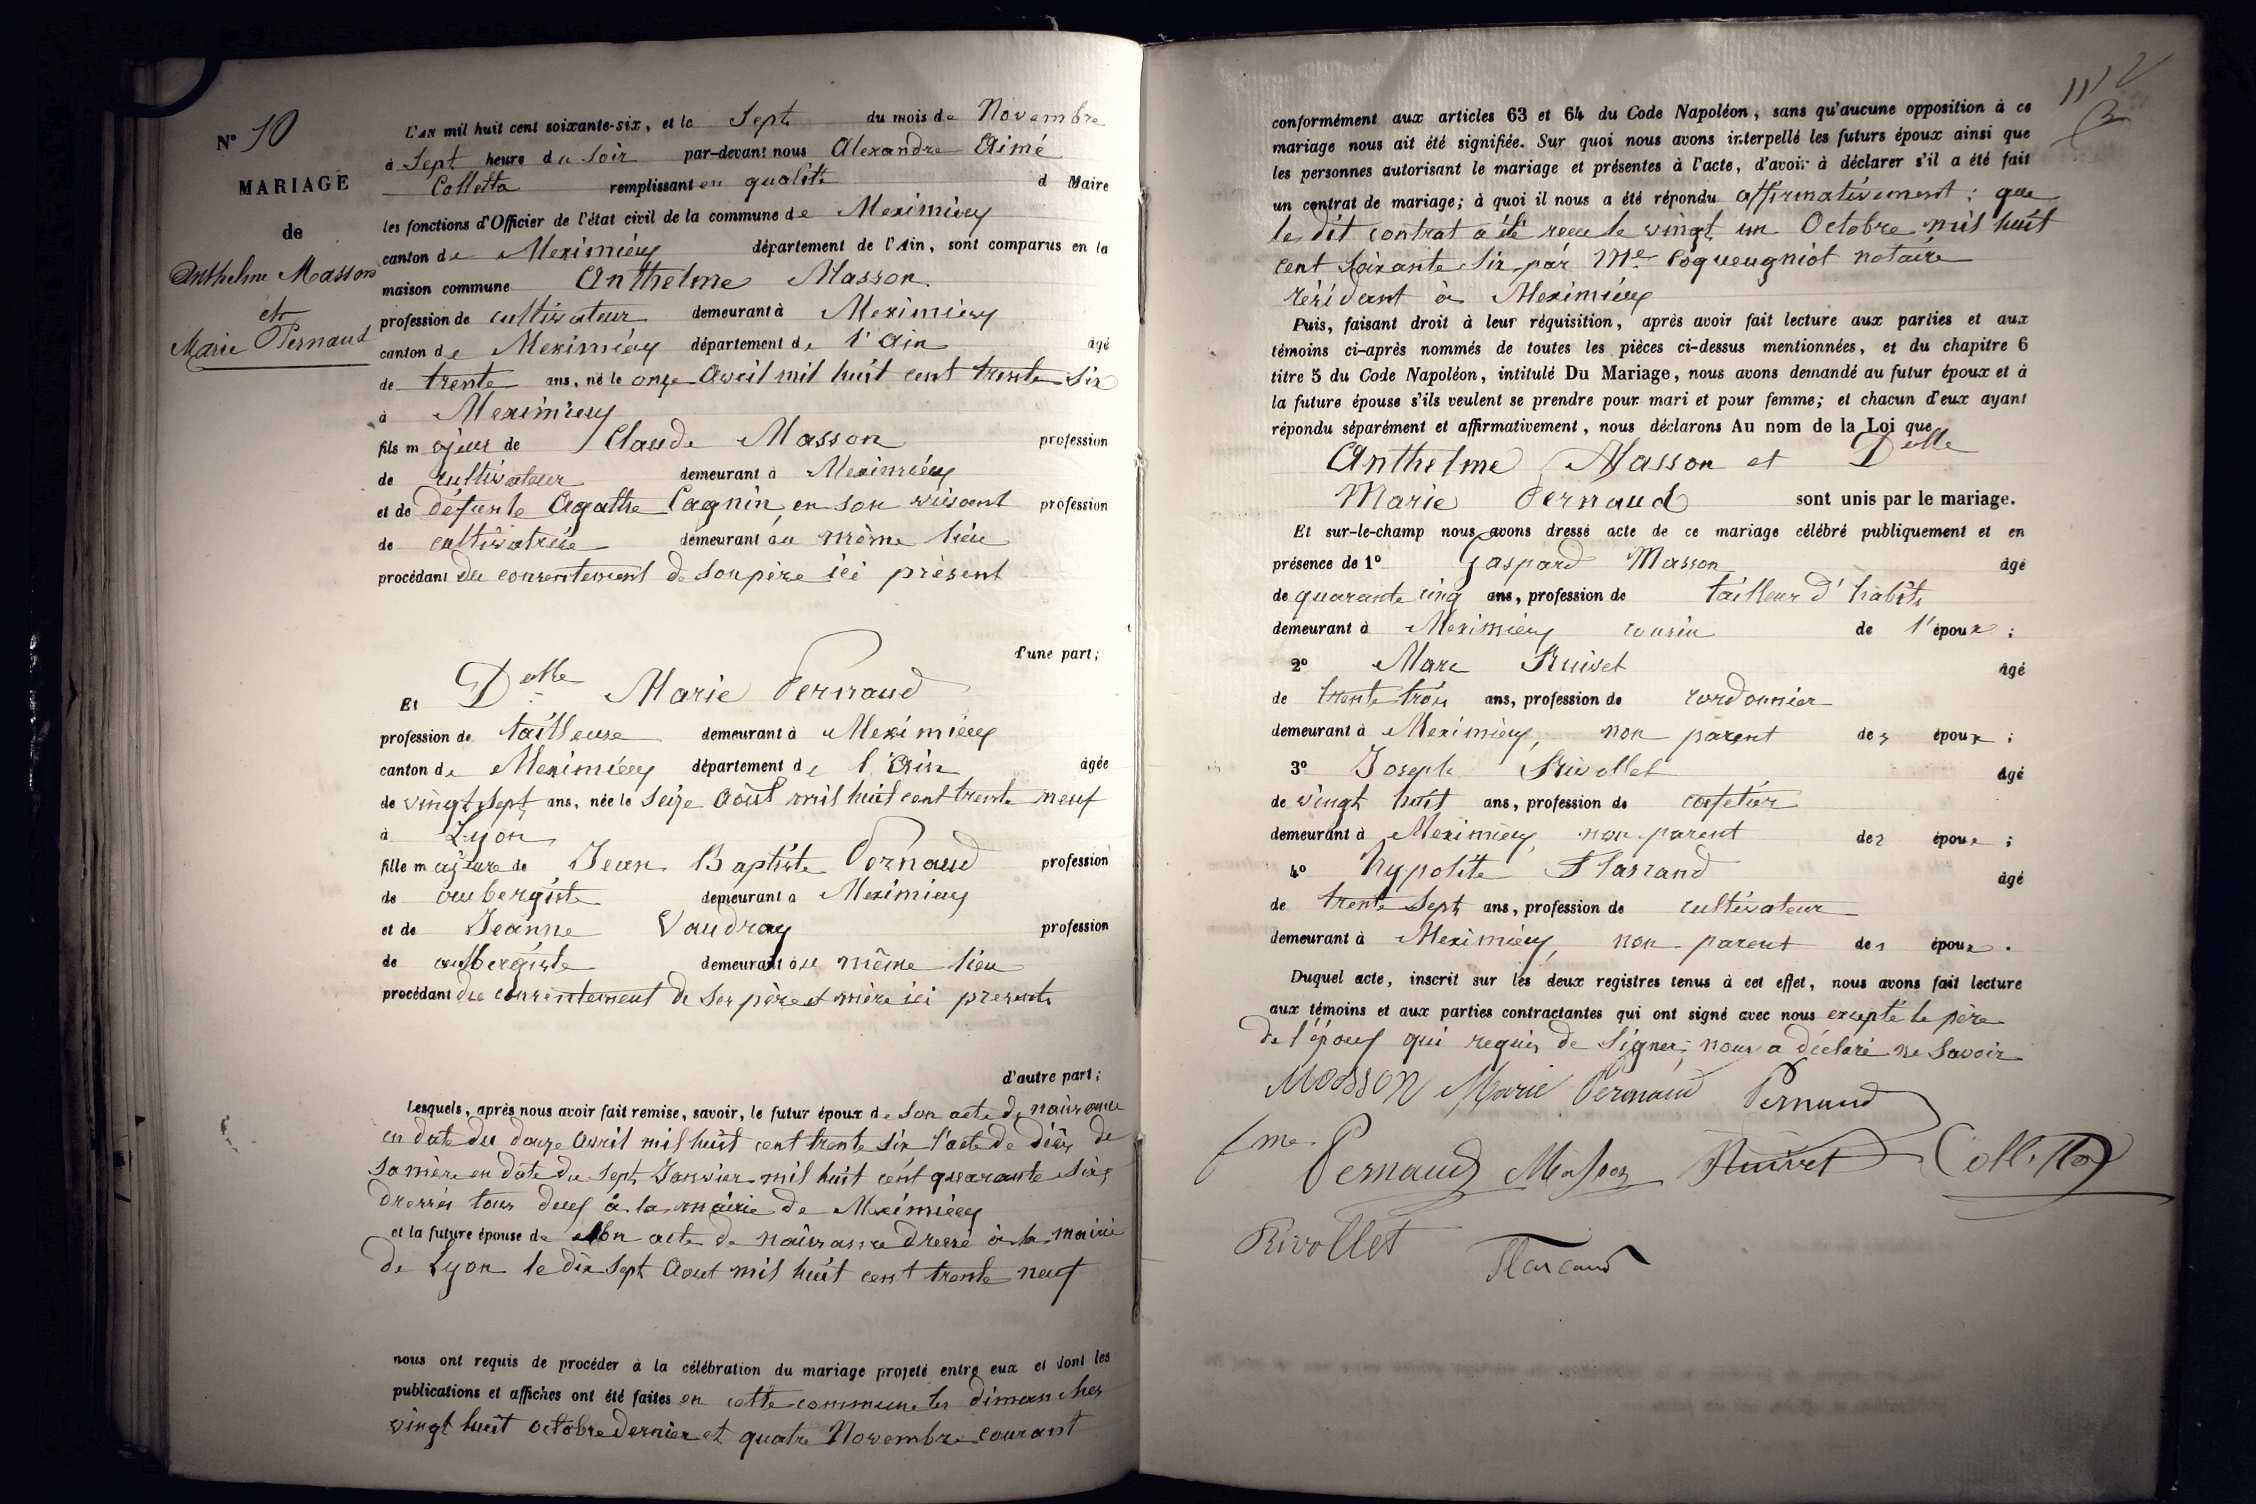 N° 10
MARIAGE
de
Anthelme Masson
et
Marie Pernaud
L'AN mil huit cent soixante-six, et le Sept du mois de Novembre
à Sept heure du Soir par-devant nous Alexandre Aimé
Colletta remplissant en qualité d Maire
les fonctions d'Officier de l'état civil de la commune de Meximieux
canton de Meximieux département de l'Ain, sont comparus en la
maison commune Anthelme Masson
profession de cultivateur demeurant à Meximieux
canton de Meximieux département de l'Ain âgé
de trente ans, né le onze Avril mil huit cent trente Six
à Meximieux
fils majeur de Claude Masson profession
de cultivateur demeurant à Meximieux
et de défunte Agathe Cagnin, en son vivant profession
de cultivatrice demeurant au même lieu
procédant du consentement de son père ici présent
d'une part;
Et Delle Marie Pernaud
profession de tailleuse demeurant à Meximieux
canton de Meximieux département de l'Ain âgée
de vingt Sept ans, née le Seize Août mil huit cent trente neuf
à Lyon
fille majeure de Jean Baptiste Pernaud profession
de aubergiste demeurant à Meximieux
et de Jeanne Vaudray profession
de aubergiste demeurant au même lieu
procédant du consentement de Ses père et mère ici présents
d'autre part;
Lesquels, après nous avoir fait remise, savoir, le futur époux de Son acte de naissance
en date du douze Avril mil huit cent trente Six l'acte de décès de
Sa mère en date du Sept Janvier mil huit cent quarante Six
dressés tous deux à la mairie de Meximieux
et la future épouse de Son acte de naissance dressé à la mairie
de Lyon le dix Sept Août mil huit cent trente neuf
nous ont requis de procéder à la célébration du mariage projeté entre eux et dont les
publications et affiches ont été faites en cette commune les dimanches
vingt huit octobre dernier et quatre Novembre courant
112
conformément aux articles 63 et 64 du Code Napoléon, sans qu'aucune opposition à ce
mariage nous ait été signifiée. Sur quoi nous avons interpellé les futurs époux ainsi que
les personnes autorisant le mariage et présentes à l'acte, d'avoir à déclarer s'il a été fait
un contrat de mariage; à quoi il nous a été répondu affirmativement; que
le dit contrat a été reçu le vingt un Octobre mil huit
cent Soixante Six par Me Coqueugniot notaire
résidant à Meximieux
Puis, faisant droit à leur réquisition, après avoir fait lecture aux parties et aux
témoins ci-après nommés de toutes les pièces ci-dessus mentionnées, et du chapitre 6
titre 5 du Code Napoléon, intitulé Du Mariage, nous avons demandé au futur époux et à
la future épouse s'ils veulent se prendre pour mari et pour femme; et chacun d'eux ayant
répondu séparément et affirmativement, nous déclarons Au nom de la Loi que
Anthelme Masson et Delle
Marie Pernaud sont unis par le mariage.
Et sur-le-champ nous avons dressé acte de ce mariage célébré publiquement et en
présence de 1° Gaspard Masson âgé
de quarante cinq ans, profession de tailleur d'habits
demeurant à Meximieux cousin de l'époux;
2° Marc Ruivet âgé
de trente trois ans, profession de cordonnier
demeurant à Meximieux, non parent des époux;
3° Joseph Rivollet âgé
de vingt huit ans, profession de cafetier
demeurant à Meximieux, non parent des époux;
4° hypolite Flassand âgé
de trente Sept ans, profession de cultivateur
demeurant à Meximieux, non parent des époux.
Duquel acte, inscrit sur les deux registres tenus à cet effet, nous avons fait lecture
aux témoins et aux parties contractantes qui ont signé avec nous excepté le père
de l'époux qui requis de Signer, nous a déclaré ne Savoir
Masson Marie Pernaud Pernaud
fme Pernaud Masson Ruivet Colletta
Rivollet